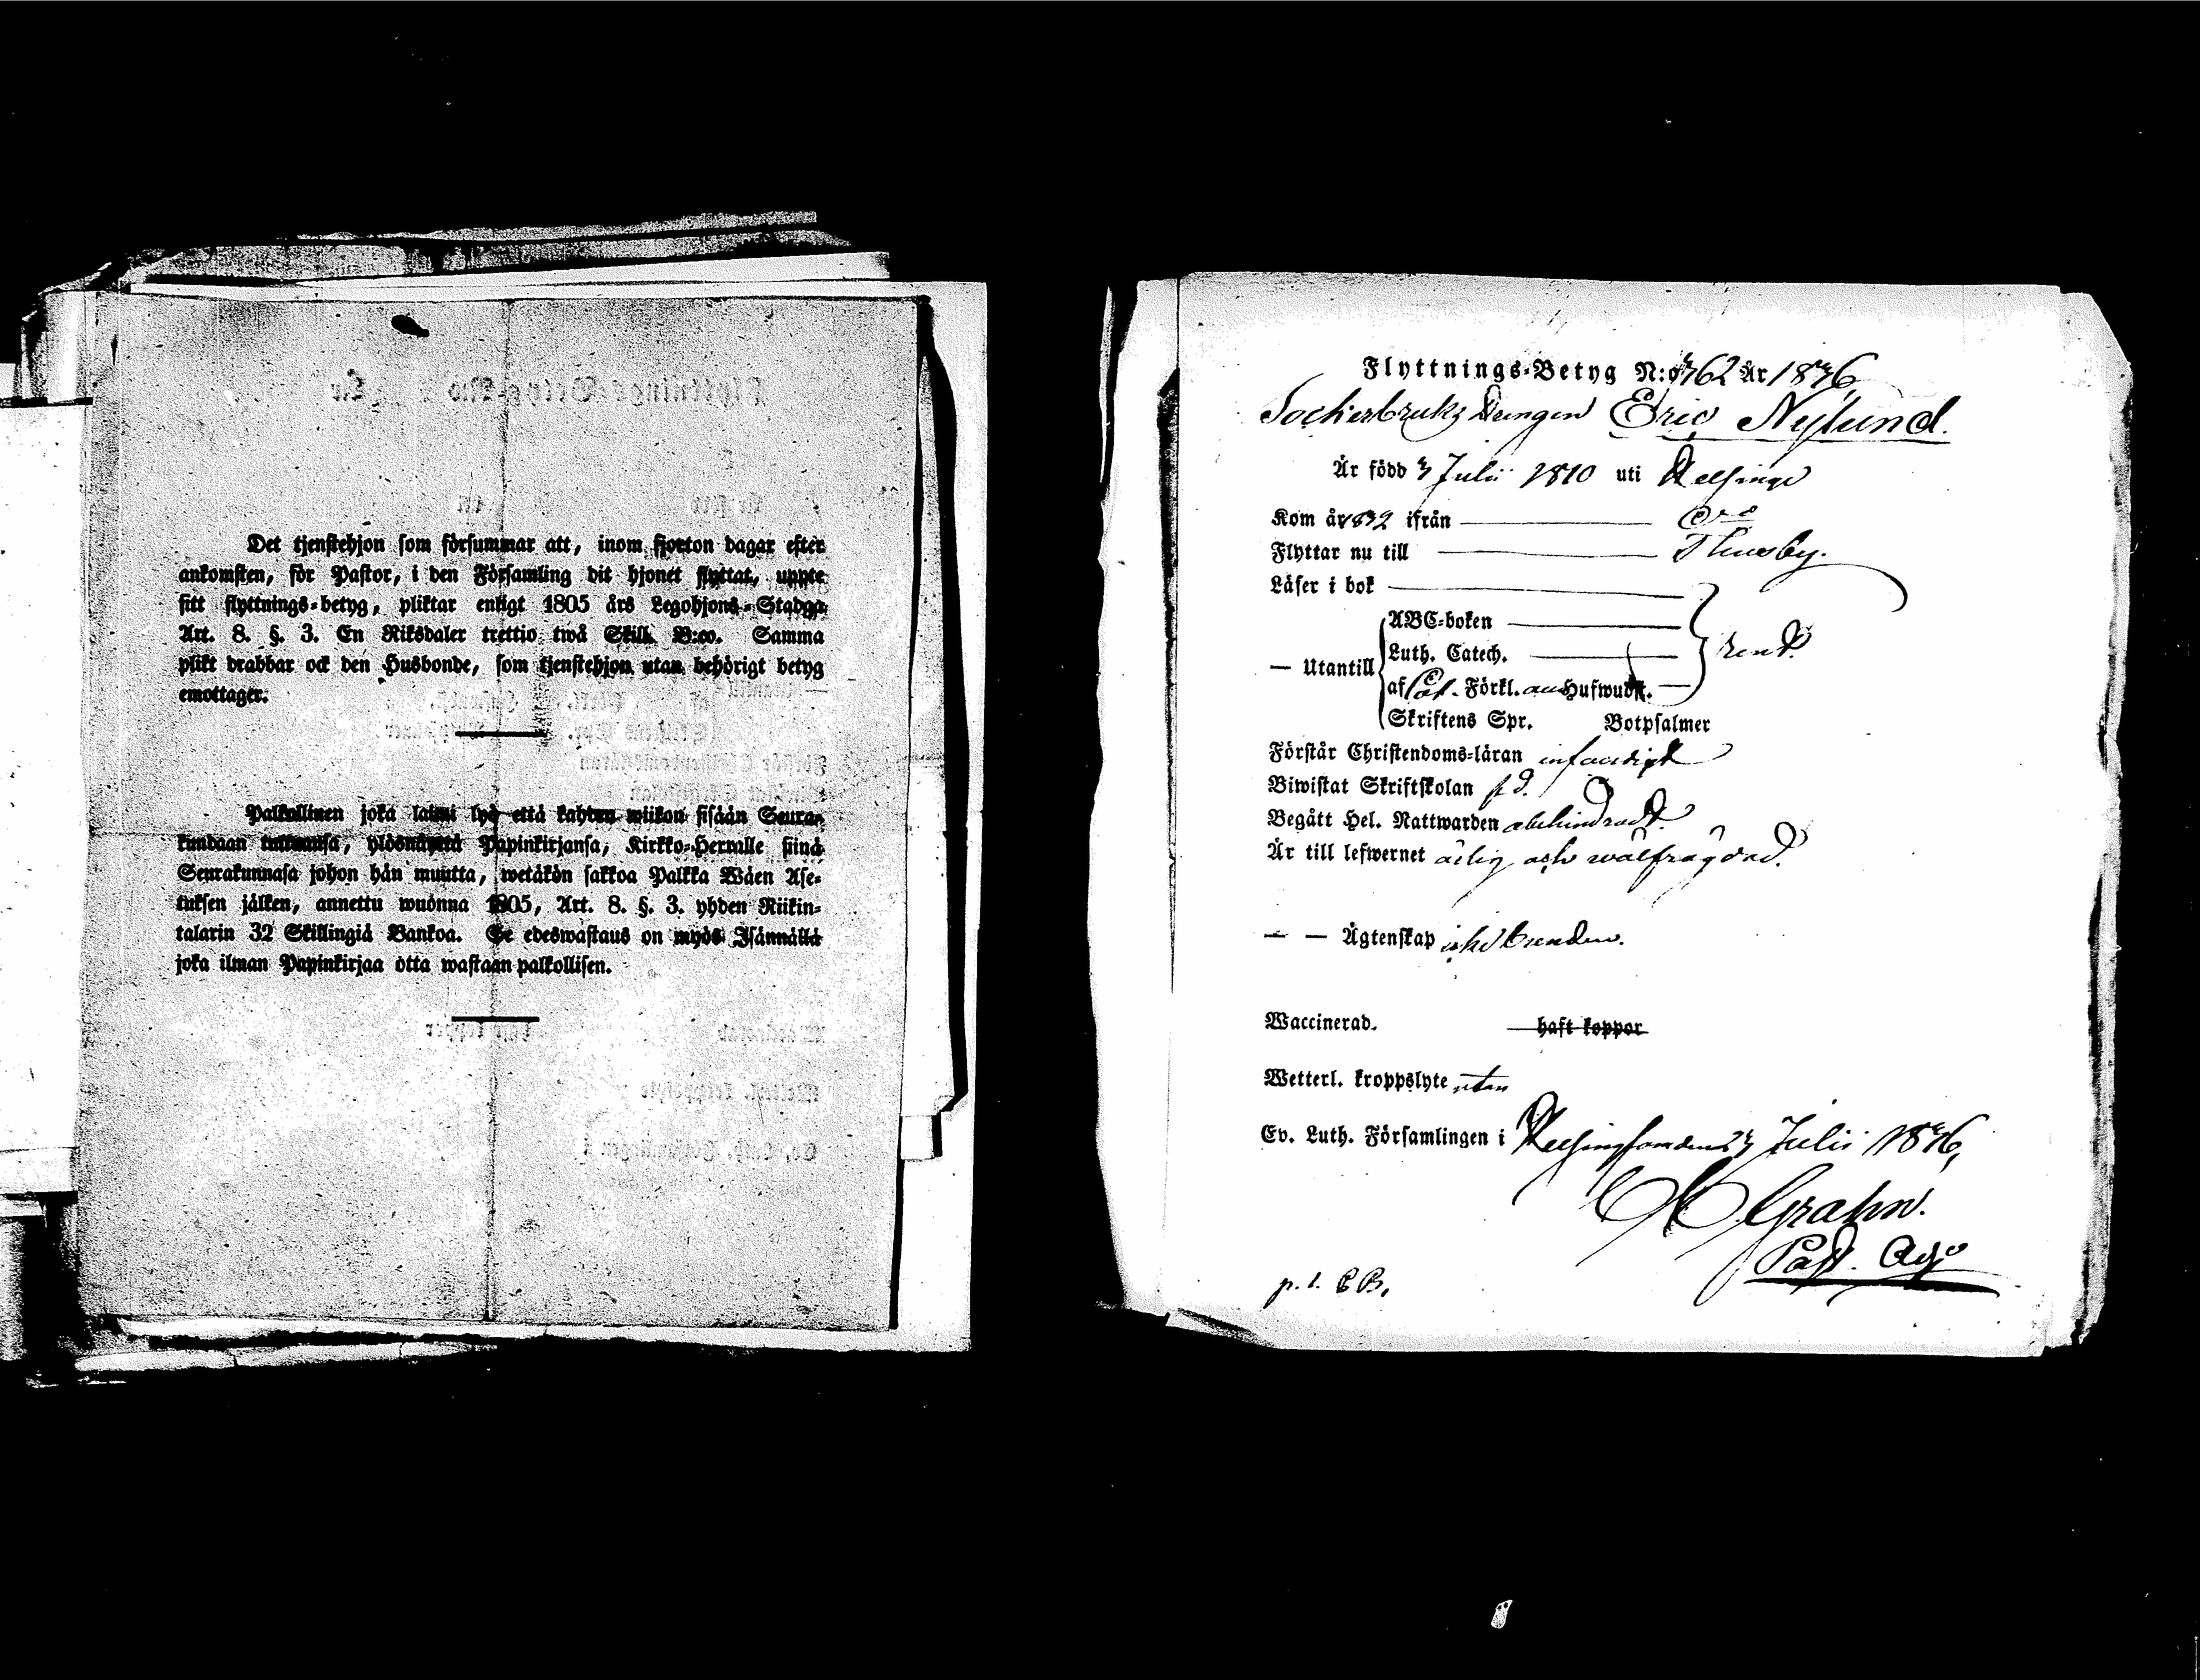 Det tjenstehjon som försummar att, inom fjorton dagar efter
ankomsten, för Pastor, i den Församling dit hjonet flyttat, uppte
sitt flyttnings-betyg, pliktar enligt 1805 års Legohjons-Stadga
Art. 8. §. 3. En Riksdaler trettio twå Skill. B:co. Samma
plikt drabbar ock den Husbonde, som tjenstehjon utan behörigt betyg
emottager.
Palkollinen joka laimi lyö että kahden wiikon sisään Seura-
kundaan tultuansa, ylösnäyttä Papinkirjansa, Kirkko-Herralle siinä
Seurakunnasa johon hän muutta, wetäkön sakkoa Palkka Wäen Ase-
tuksen jälken, annettu wuonna 1805, Art. 8. §. 3. yhden Riikin-
talarin 32 Skillingiä Bankoa. Se edeswastaus on myös Isännällä
joka ilman Papinkirjaa otta wastaan palkollisen.
Flyttnings-Betyg N:o 762 År 1846
Sockerbruks Drengen Eric Nylund.
Är född Julii 1810 uti Helsinge
Kom år ifrån
Flyttar nu till Thusby.
Läser i bok
ABC-boken
— Utantill Luth. Catech. rent.
af Förkl. Hufwudst.
Skriftens Spr. Botpsalmer
Förstår Christendoms-läran
Biwistat Skriftskolan
Begått Hel. Nattwarden obehindradt.
Är till lefwernet ärlig och wälfrägdad.
— — Ägtenskap icke bunden.
Waccinerad. haft koppor
Wetterl. kroppslyte utan
Ev. Luth. Församlingen i Helsingfors den Julii 1846,
Grahn.
Past. Adj.
p. t.